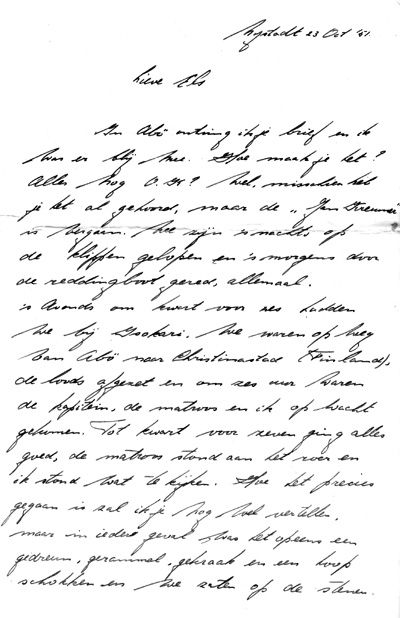 Nystadt 23 Oct '51.
Lieve Els
In Abö ontving ik je brief en ik
was er blij mee. Hoe maak je het?
Alles nog O.K? Wel, misschien heb
je het al gehoord, maar de „Jan
is vergaan. We zijn 's nachts op
de klippen gelopen en 's morgens door
de reddingboot gered, allemaal.
's Avonds om kwart voor zes hadden
we bij Isokari. We waren op weg
van Abö naar Christinastad (Finland),
de loods afgezet en om zes uur waren
de kapitein, de matroos en ik op wacht
gekomen. Tot kwart voor zeven ging alles
goed, de matroos stond aan het roer en
ik stond wat te kijken. Hoe het precies
gegaan is zal ik je nog wel vertellen,
maar in ieder geval was het opeens een
gedreun, gerammel, gekraak en een hoop
schokken en we zaten op de stenen.